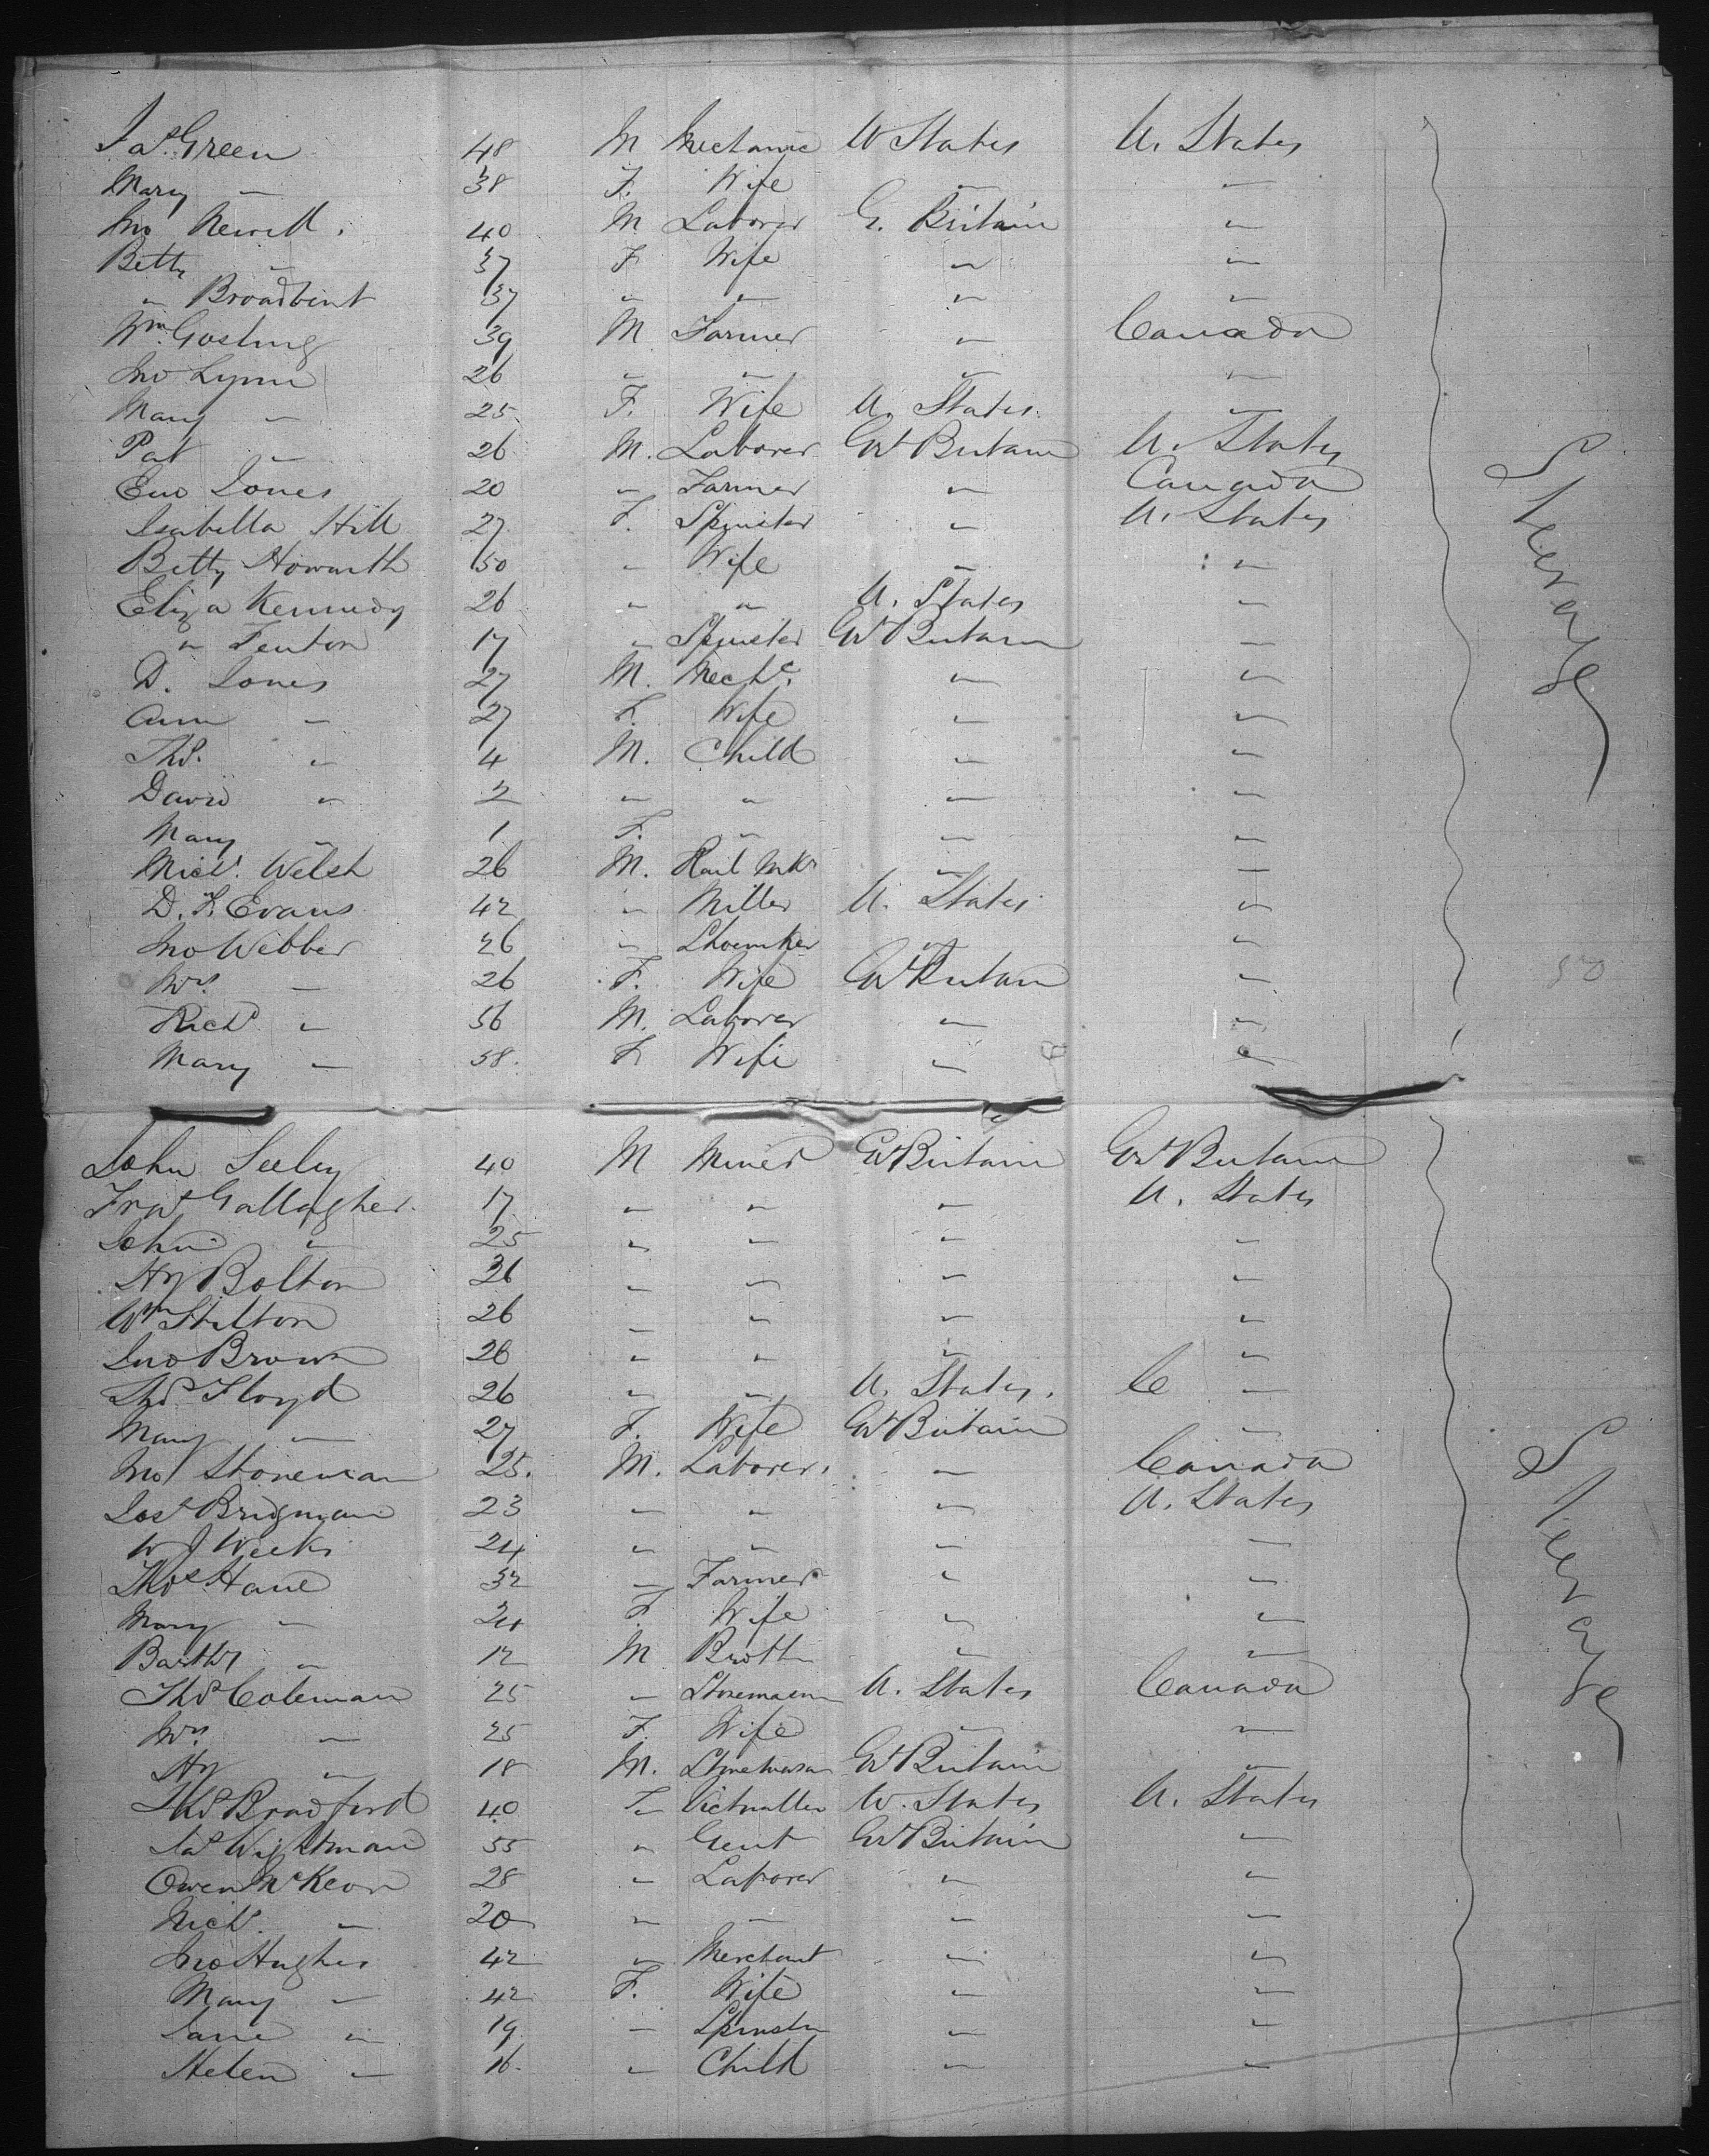 Jas Green 48 M Mechanic U States U. States
Mary " 38 F. Wife " "
Jno Newell. 40 M Laborer G. Britain "
Betty " 37 F Wife " "
" Broadbent 37 " " " "
Wm. Gosling 39 M Farmer " Canada
Jno Lynn 26 " " " "
Mary " 25 F. Wife U. States. "
Pat " 26 M. Laborer Gt Britain U. States
Jones 20 " Farmer " Canada
Isabella Hill 27. F. Spinster " U. States
Betty Howarth 50 " Wife " "
Eliza Kennedy 26 " " U. States "
" Fenton 17 " Spinster Gt Britain "
D. Jones 27 M. Mechc. " "
Ann " 27 F. Wife " "
Thos. " 4 M. Child " "
David " 2 " " " "
Mary " 1 F. " " "
Micl. Welsh 26 M. Rail Mkr " "
D. R. Evans 42 " Miller U. States "
Jno Webber 26 " Shoemker " "
Mrs. " 26 F. Wife Gt Britain "
Richd " 56 M. Laborer " "
Mary " 58. F Wife " "
John Seeley 40 M Miner Gt Britain Gt Britain
Fras Gallagher. 17 " " " U. States
John " 25 " " " "
Hy Bolton 36 " " " "
Wm Stilton 26 " " " "
Jno Brown 26 " " " "
Thos Floyd 26 " " U. States. "
Mary " 27 F. Wife Gt Britain "
Jno Stoneman 25. M. Laborer. " Canada
Jos Bridgman 23 " " " U. States
W J Weeks 24 " " " "
Thos Hane 32 " Farmer " "
Mary " 24 F. Wife " "
Barthw " 12 M Broth " "
Thos Coleman 25 " Stonemason U. States Canada
Mrs. " 25 F. Wife " "
Hy " 18 M. Stonemason Gt Britain "
Thos Bradford 40 " Victualler U. States U. States
Jas Wightman 55 " Gent Gt Britain "
Owen McKeon 28 " Laborer " "
Michl. " 20 " " " "
Jno Hughes 42 " Merchant " "
Mary " 42 F. Wife " "
Jane " 19 " Spinster " "
Helen " 16. " Child " "
Steerage
50
Steerage